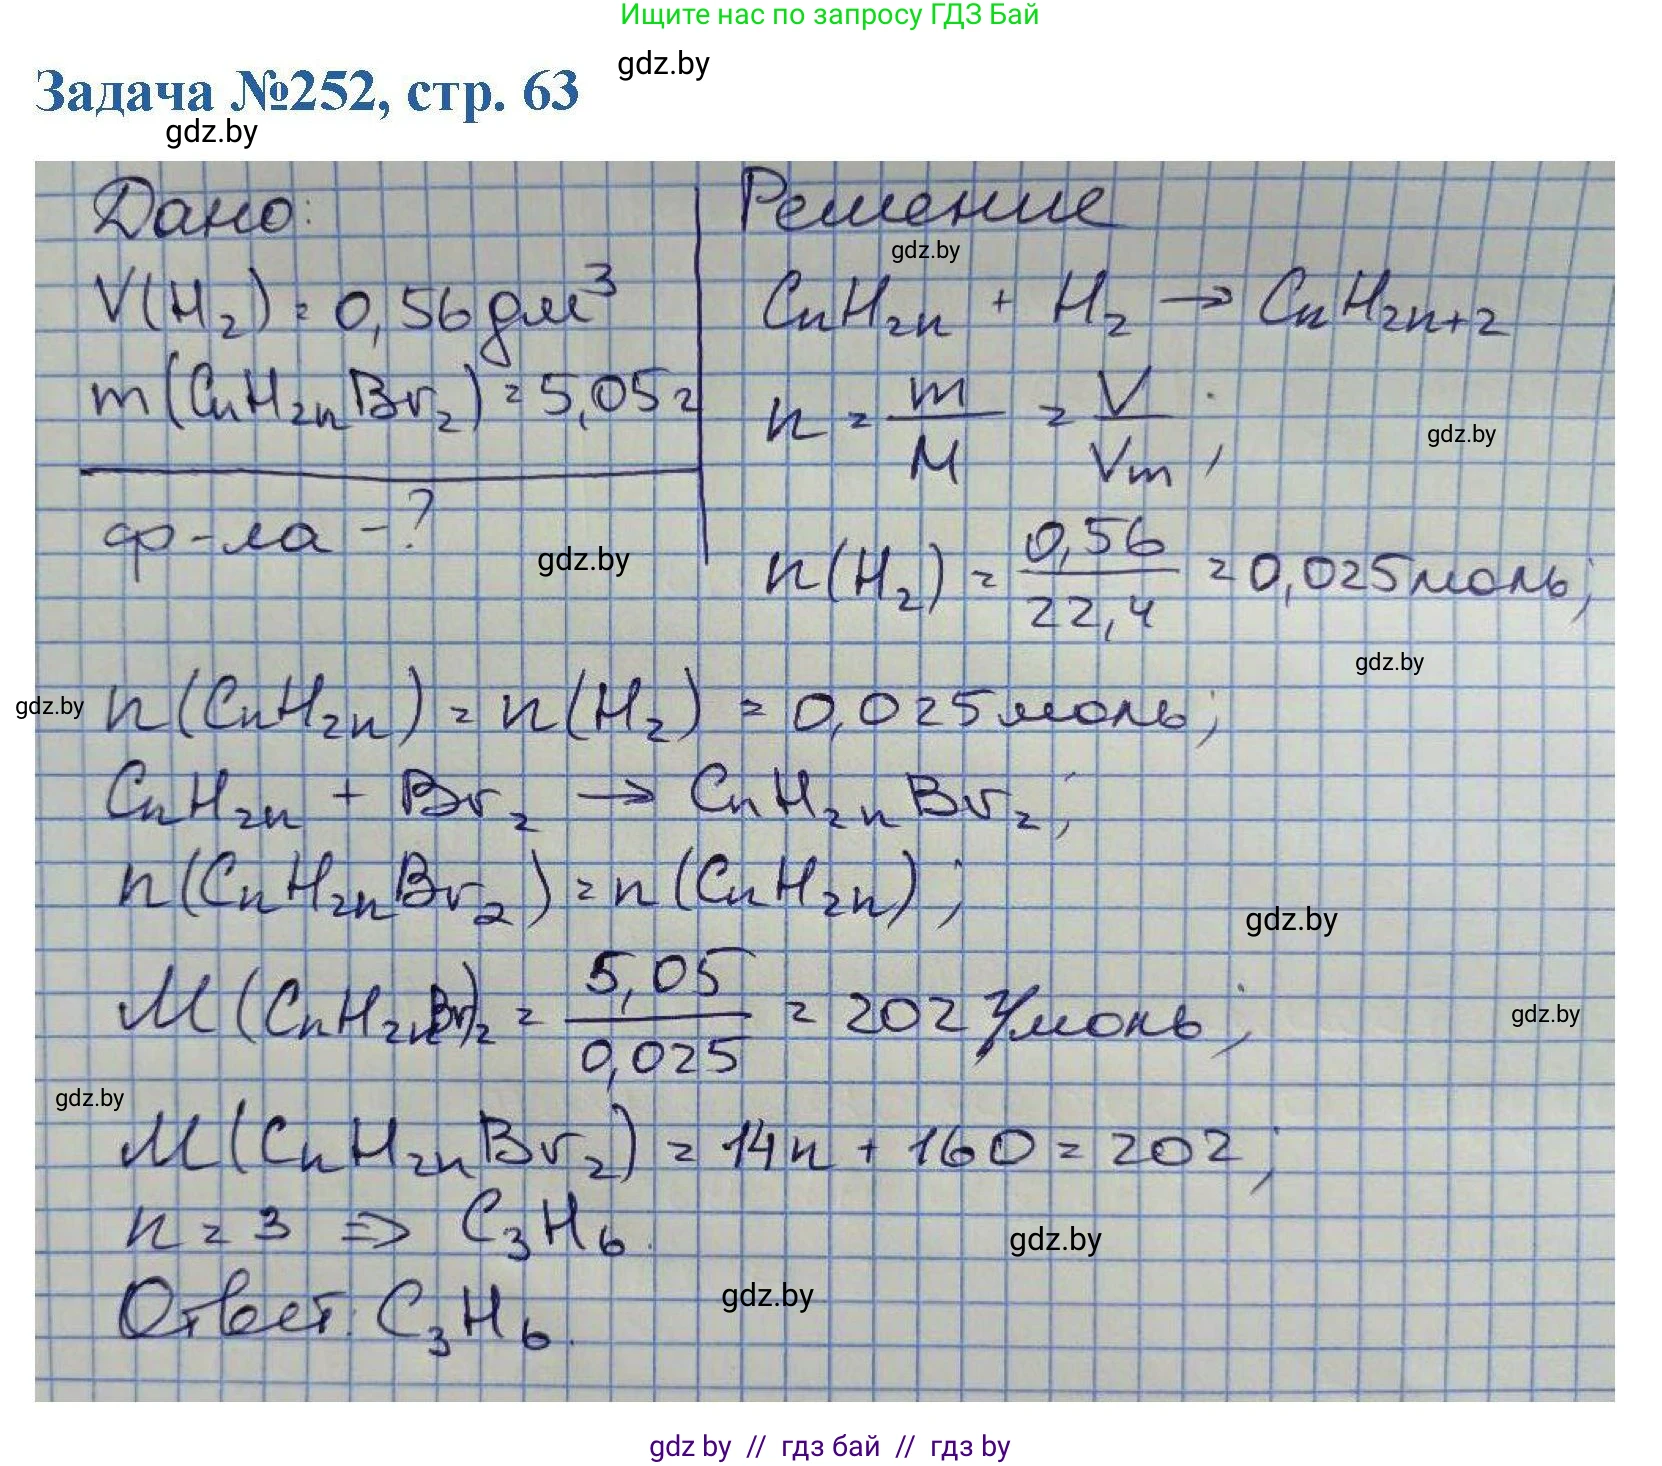 Ищите нас по запросу ГДЗ Бай
gdz.by
Задача №252, стр. 63
gdz.by
Дано:
V(H₂) = 0,56 дм³
m(CₙH₂ₙBr₂) = 5,05 г
ф-ла - ?
gdz.by
Решение
gdz.by
CₙH₂ₙ + H₂ → CₙH₂ₙ₊₂
n = m/M = V/Vm;
gdz.by
n(H₂) = 0,56/22,4 = 0,025 моль;
gdz.by
gdz.by
n(CₙH₂ₙ) = n(H₂) = 0,025 моль;
CₙH₂ₙ + Br₂ → CₙH₂ₙBr₂;
n(CₙH₂ₙBr₂) = n(CₙH₂ₙ);
gdz.by
M(CₙH₂ₙBr)₂ = 5,05/0,025 = 202 г/моль;
gdz.by
gdz.by
M(CₙH₂ₙBr₂) = 14n + 160 = 202;
n = 3 => C₃H₆.
gdz.by
Ответ: C₃H₆.
gdz.by
gdz by // гдз бай // гдз by